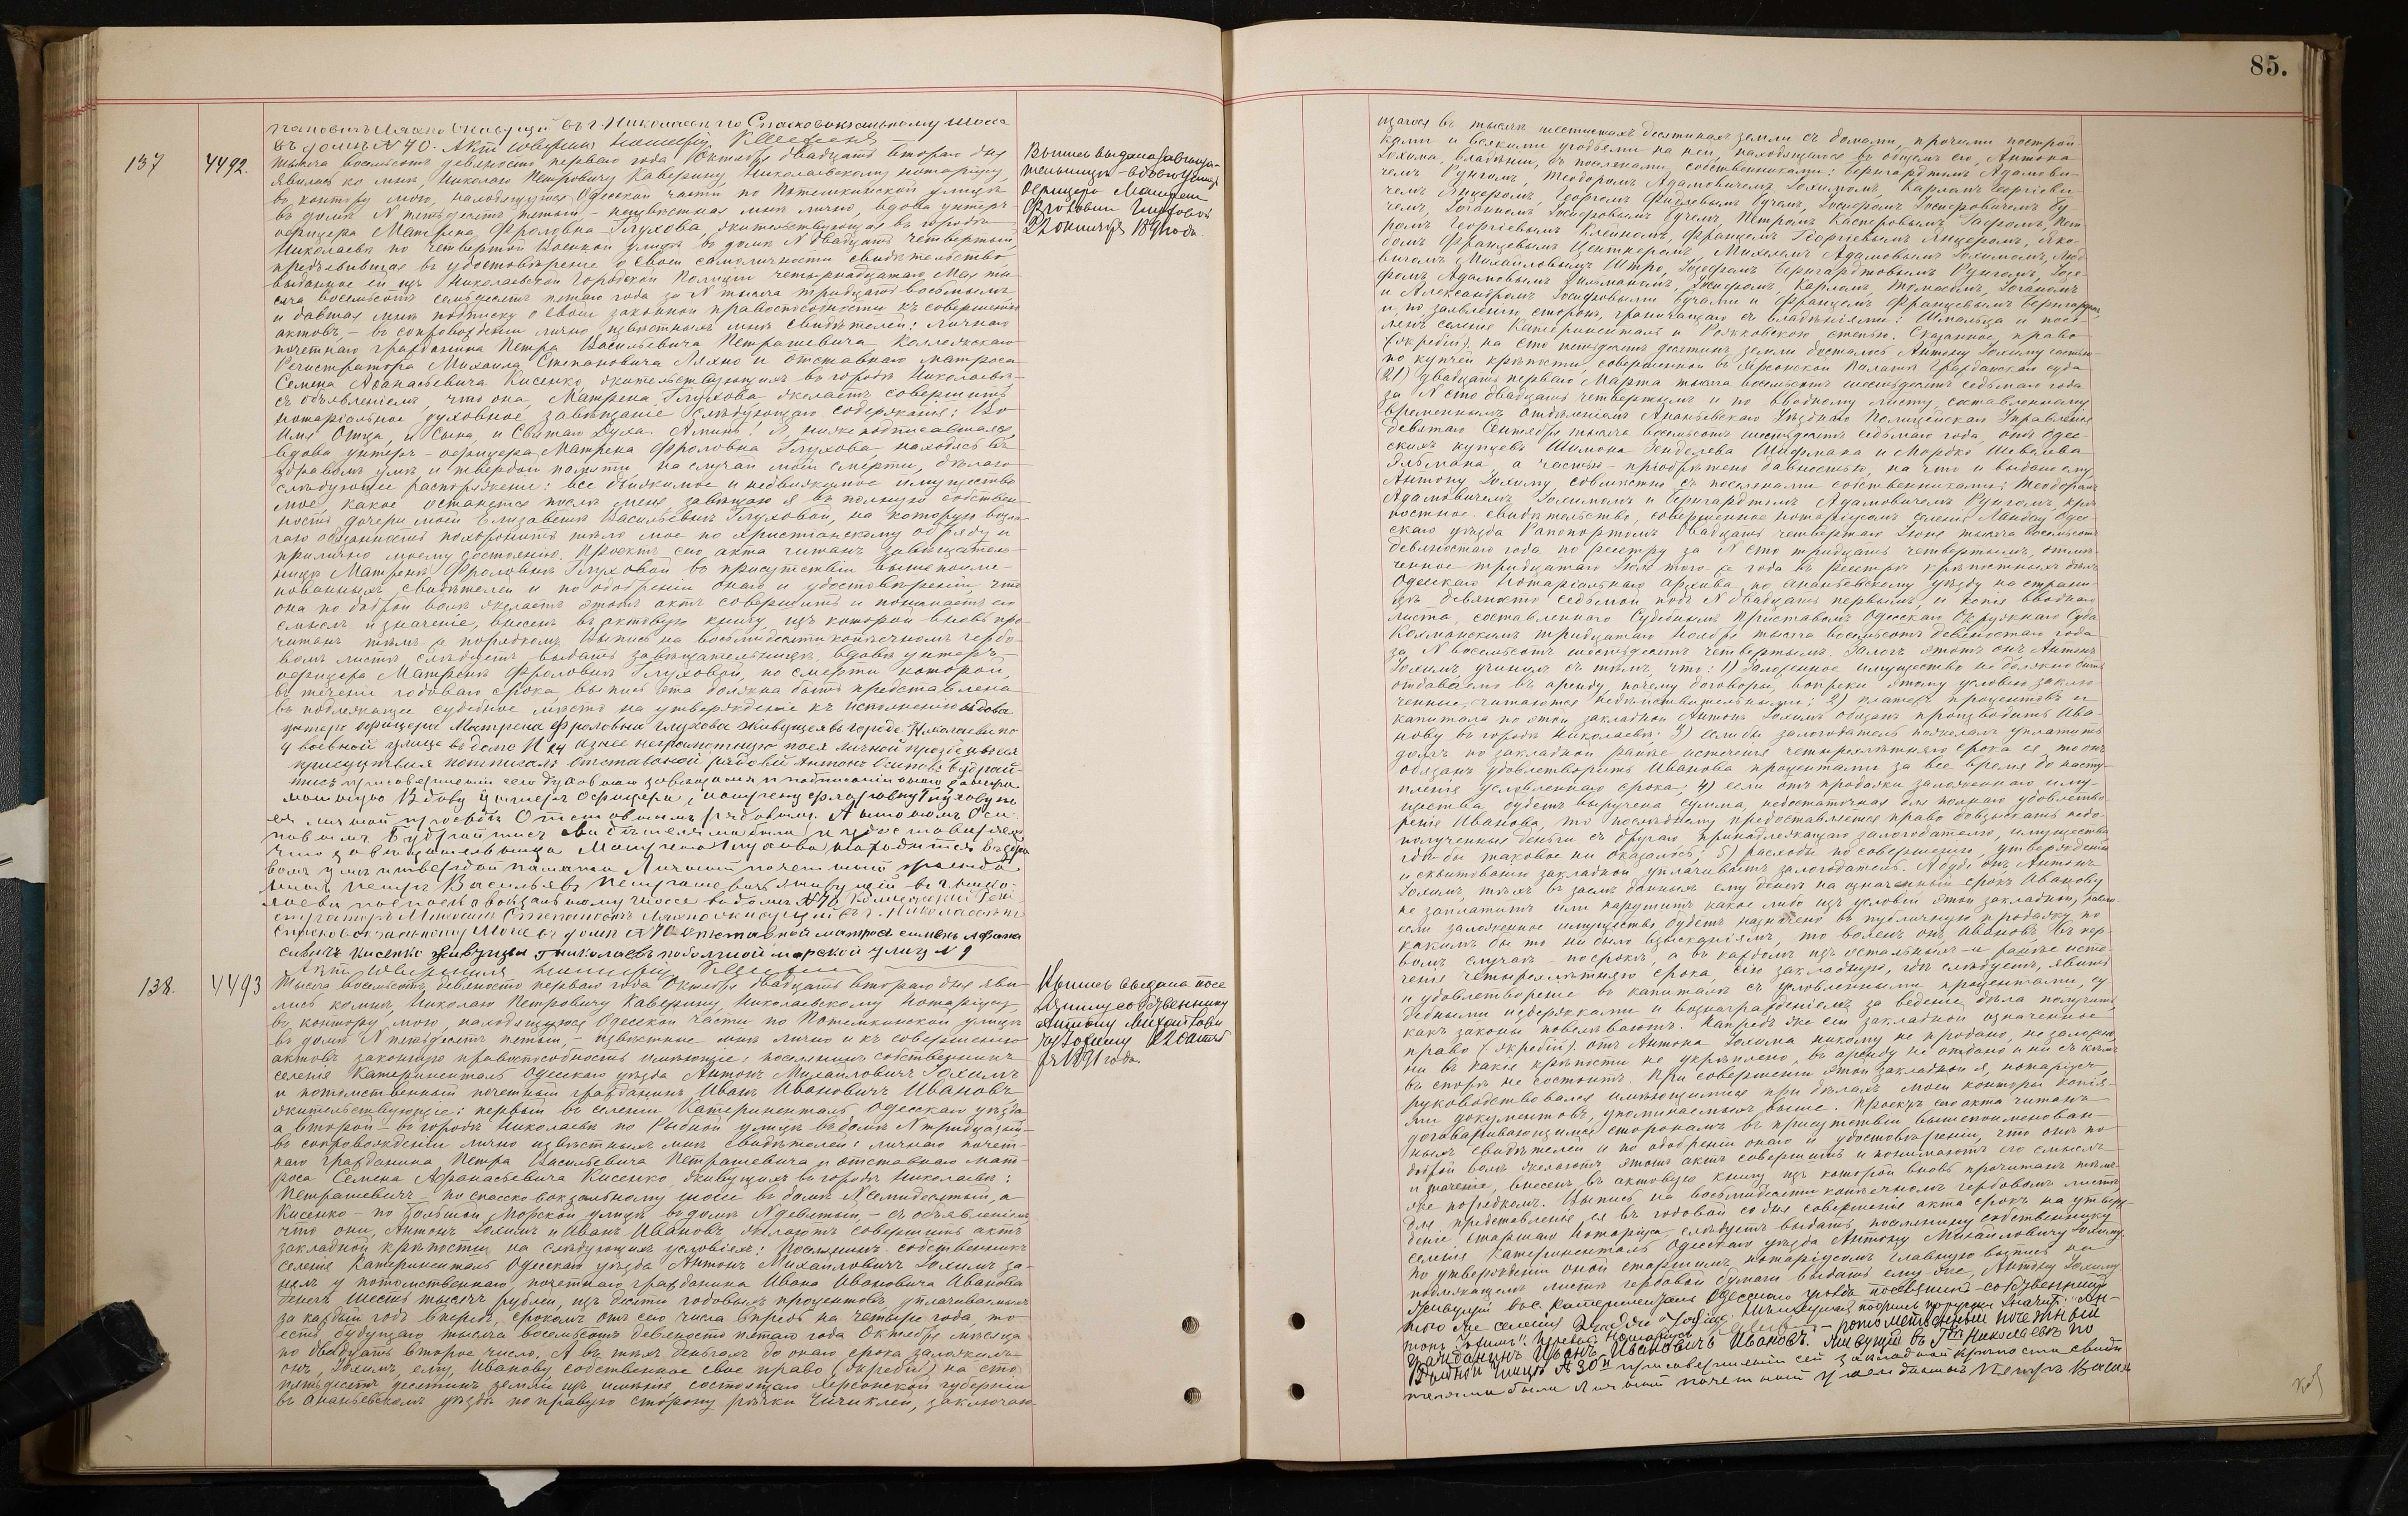 85.
пановичъ Ляхно живущій въ г. Николаевѣ по Спасковокзальному шоссе
въ домѣ N 70. Актъ совершилъ
137
4492.
Тысяча восемьсотъ девяносто перваго года Октября двадцать втораго дня
явилась ко мнѣ, Николаю Петровичу Каверину, Николаевскому нотаріусу,
въ контору мою, находящуюся Одесской части по Потемкинской улицѣ
въ домѣ N пятьдесятъ пятый, – неизвѣстная мнѣ лично, вдова унтеръ-
офицера Матрена Фроловна Глухова, жительствующая въ городѣ
Николаевѣ по четвертой Военной улицѣ въ домѣ N двадцать четвертый,
предъявившая въ удостовѣреніе о своей самоличности свидѣтельство
выданное ей изъ Николаевской Городской Полиціи четырнадцатаго Мая ты-
сяча восемьсотъ семьдесятъ пятаго года за N тысяча тридцать восьмымъ
и давшая мнѣ подписку о своей законной правоспособности къ совершенію
актовъ, – въ сопровожденіи лично извѣстныхъ мнѣ свидѣтелей: личнаго
почетнаго гражданина Петра Васильевича Петрашевича, Коллежскаго
Регистратора Михаила Степановича Ляхно и отставнаго матроса
Семена Афанасьевича Кисенко, жительствующихъ въ городѣ Николаевѣ –
съ объявленіемъ, что она, Матрена Глухова желаетъ совершить
нотаріальное духовное завѣщаніе слѣдующаго содержанія: Во
имя Отца, и Сына, и Святаго Духа. Аминь! Я нижеподписавшаяся,
вдова унтеръ-офицера Матрена Фроловна Глухова, находясь въ
здравомъ умѣ и твердой памяти, на случай моей смерти, дѣлаю
слѣдующее распоряженіе: все движимое и недвижимое имущество
мое, какое останется послѣ меня, завѣщаю я въ полную собствен-
ность дочери моей Елизаветѣ Васильевнѣ Глуховой, на которую возла-
гаю обязанность похоронить тѣло мое по христіанскому обряду и
прилично моему состоянію. Проектъ сего акта читанъ завѣщатель-
ницѣ Матренѣ Фроловнѣ Глуховой въ присутствіи вышепоиме-
нованныхъ свидѣтелей и по одобреніи онаго и удостовѣреніи, что
она по доброй волѣ желаетъ этотъ актъ совершить и понимаетъ его
смыслъ и значеніе, внесенъ въ актовую книгу, изъ которой вновь про-
читанъ тѣмъ же порядкомъ. Выпись на восьмидесятикопѣечномъ гербо-
вомъ листѣ слѣдуетъ выдать завѣщательницѣ, вдовѣ унтеръ-
офицера Матренѣ Фроловнѣ Глуховой, по смерти которой,
въ теченіе годоваго срока, выпись эта должна быть представлена
въ подлежащее судебное мѣсто на утвержденіе къ исполненію. Вдова
унтеръ офицера Матрена Фроловна Глухова живущая въ городе Николаеве по
4 военной улице въ доме N 24 а за нее неграмотную по ея личной прозбе
присутствія подписалъ Отставной рядовой Антонъ Осиповъ Будрай-
тисъ при совершеніи сего духовнаго завещанія и подписаніи
вдову унтеръ офицера Матрену Фроловну Глухову по
ея личной просьбѣ Отставнымъ рядовымъ Антономъ Оси-
повымъ Будрайтисъ свидѣтелями были и удостоверяемъ
что завѣщательница Матрена Глухова находится въ здра-
вомъ умѣ и твердой памяти Личный почетный гражда-
нинъ Петръ Васильевъ Петрашевичъ живущій въ г. Нико-
лаевѣ по Спасковокзальному шоссе въ домѣ N 70. Коллежскій Реги-
страторъ Михаилъ Степановичъ Ляхно живущій въ г. Николаевѣ по
Спасковокзальному шоссе въ домѣ N 70. Отставной матросъ Семенъ Афана
сьевичъ Кисенко живущій г. Николаевѣ по большой морской улицѣ N 9
Актъ совершилъ
Выпись выдана завѣща-
тельницѣ – вдовѣ унтеръ
офицера Матренѣ
Фроловнѣ Глуховой
22 октября 1891 года.
138.
4493
Тысяча восемьсотъ девяносто перваго года Октября двадцать втораго дня яви-
лись ко мнѣ, Николаю Петровичу Каверину, Николаевскому Нотаріусу,
въ контору мою, находящуюся Одесской части по Потемкинской улицѣ
въ домѣ N пятьдесятъ пятый, – извѣстные мнѣ лично и къ совершенію
актовъ законную правоспособность имѣющіе: поселянинъ собственникъ
селенія Катериненталь Одесскаго уѣзда Антонъ Михайловичъ Іохимъ
и потомственный почетный гражданинъ Иванъ Ивановичъ Ивановъ
жительствующіе: первый въ селеніи Катериненталь, Одесскаго уѣзда
а второй – въ городѣ Николаевѣ по Рыбной улицѣ въ домѣ N тридцатый –
въ сопровожденіи лично извѣстныхъ мнѣ свидѣтелей: личнаго почет-
наго гражданина Петра Васильевича Петрашевича и отставнаго мат-
роса Семена Афанасьевича Кисенко, живущихъ въ городѣ Николаевѣ:
Петрашевичъ – по спасско-вокзальному шоссе въ домѣ N семидесятый, а
Кисенко – по большой Морской улицѣ въ домѣ N девятый, – съ объявленіемъ
что они, Антонъ Іохимъ и Иванъ Ивановъ желаютъ совершить актъ
закладной крѣпости, на слѣдующихъ условіяхъ: поселянинъ собственникъ
селенія Катериненталь Одесскаго уѣзда Антонъ Михайловичъ Іохимъ за-
нялъ у потомственнаго почетнаго гражданина Ивана Ивановича Иванова
денегъ шесть тысячъ рублей, изъ десяти годовыхъ процентовъ, уплачиваемыхъ
за каждый годъ впередъ, срокомъ отъ сего числа впредь на четыре года, то
есть, будущаго тысяча восемьсотъ девяносто пятаго года Октября мѣсяца
по двадцать второе число. А въ тѣхъ деньгахъ до онаго срока заложилъ
онъ, Іохимъ, ему, Иванову собственное свое право (жребій) на сто
пятьдесятъ десятинъ земли изъ имѣнія состоящаго Херсонской губерніи
въ Ананьевскомъ уѣздѣ по правую сторону рѣчки Чичиклеи, заключаю-
Выпись выдана посе
лянину собственнику
Антону Михайлови
чу Іохиму 22 Октяб
ря 1891 года.
щагося въ тысячѣ шестистахъ десятинахъ земли съ домами, прочими построй-
ками и всякими угодьями на ней, находящагося въ общемъ его, Антона
Іохима, владѣніи, съ поселянами собственниками: Бернгардтомъ Адамови-
чемъ Рунгомъ, Теодоромъ Адамовичемъ Іохимомъ, Карломъ Георгіеви-
чемъ Янцеромъ, Георгомъ Фиделевымъ Бучемъ, Іосифомъ Іосифовичемъ Бу
чемъ, Іоганномъ Іосифовымъ Бучемъ, Петромъ Касперовымъ Гаафомъ, Пет
ромъ Георгіевымъ Клейномъ, Францемъ Георгіевымъ Янцеромъ, Яко-
бомъ Францевымъ Центнеромъ, Михелемъ Адамовымъ Іохимомъ, Люд
вигомъ Михайловымъ Штро, Іозефомъ Бернгардтовымъ Рунгомъ, Іозе-
фомъ Адамовымъ Фильманомъ, Іосифомъ, Карломъ, Томасомъ, Іоганомъ
и Александромъ Іосифовыми Бучами и Францемъ Францевымъ Бернгардтомъ
и, по заявленію сторонъ, граничащаго съ владѣніями: Шмальца и посе-
лянъ селенія Катериненталь и Рожковской степью. Сказанное право
(жребій) на сто пятьдесятъ десятинъ земли досталось Антону Іохиму частью
по купчей крѣпости, совершенной въ Херсонской Палатѣ Гражданскаго суда
(21) двадцать перваго Марта тысяча восемьсотъ шестьдесятъ седьмаго года
за N сто двадцать четвертымъ и по вводному листу, составленному
Временнымъ отдѣленіемъ Ананьевскаго Уѣзднаго Полицейскаго Управленія
девятаго Сентября тысяча восемьсотъ шестьдесятъ седьмаго года, отъ Одес-
скихъ купцевъ Шимона Зенделева Шифмана и Мордко Шевелева
Гальмана, а частью – пріобрѣтено давностью, на что и выдано ему,
Антону Іохиму, совмѣстно съ поселянами собственниками: Теодоромъ
Адамовичемъ Іохимомъ и Бернгардтомъ Адамовичемъ Рунгомъ, крѣ
постное свидѣтельство, совершенное нотаріусомъ селенія Ландау Одес-
скаго уѣзда Рапопортомъ двадцать четвертаго Іюня тысяча восемьсотъ
девяностаго года по реестру за N сто тридцать четвертымъ, отмѣ-
ченное тридцатаго Іюля того же года въ реестрѣ крѣпостныхъ дѣлъ
Одесскаго Нотаріальнаго архива, по Ананьевскому уѣзду на страни-
цѣ девяносто седьмой подъ N двадцать первымъ, и копія вводнаго
листа, составленнаго Судебнымъ Приставомъ Одесскаго Окружнаго Суда
Колманскимъ тридцатаго Ноября тысяча восемьсотъ девяностаго года
за N восемьсотъ шестьдесятъ четвертымъ. Залогъ этотъ онъ Антонъ
Іохимъ, учинилъ съ тѣмъ, что: 1) заложенное имущество не должно быть
отдаваемо въ аренду, почему договоры, вопреки этому условію заклю-
ченные, считаются недѣйствительными; 2) платежъ процентовъ и
капитала по этой закладной Антонъ Іохимъ обязанъ производить Ива-
нову въ городѣ Николаевѣ; 3) если бы залогодатель пожелалъ уплатить
долгъ по закладной ранѣе истеченія четырехлѣтняго срока ея, то онъ
обязанъ удовлетворить Иванова процентами за все время до насту-
пленія условленнаго срока; 4) если отъ продажи заложеннаго иму-
щества будетъ выручена сумма, недостаточная для полнаго удовлетво-
ренія Иванова, то послѣднему предоставляется право довзыскать недо-
полученныя деньги съ другаго принадлежащаго залогодателю, имущества
гдѣ бы таковое ни оказалось; 5) расходы по совершенію, утвержденію
и сквитованію закладной уплачиваетъ залогодатель. А буде онъ, Антонъ
Іохимъ, тѣхъ въ заемъ данныхъ ему денегъ на означенный срокъ Иванову
не заплатитъ или нарушитъ какое либо изъ условій этой закладной,
если заложенное имущество будетъ назначено въ публичную продажу по
какимъ бы то ни было взысканіямъ, то воленъ онъ Ивановъ въ пер-
вомъ случаѣ – по срокѣ, а въ каждомъ изъ остальныхъ – и ранѣе исте-
ченія четырехлѣтняго срока, сію закладную, гдѣ слѣдуетъ, явить
и удовлетвореніе въ капиталѣ съ условленными процентами, су-
дебными издержками и вознагражденіемъ за веденіе дѣла получить,
какъ законы повелѣваютъ. Напредь же сей закладной означенное
право (жребій) отъ Антона Іохима никому не продано, не заложено
ни въ какія крѣпости не укрѣплено, въ аренду не отдано и ни съ кѣмъ
въ спорѣ не состоитъ. При совершеніи этой закладной я, нотаріусъ,
руководствовался имѣющимися при дѣлахъ моей конторы копія-
ми документовъ, упоминаемыхъ выше. Проектъ сего акта читанъ
договаривающимся сторонамъ въ присутствіи вышепоименован-
ныхъ свидѣтелей и по одобреніи онаго и удостовѣреніи, что они по
доброй волѣ желаютъ этотъ актъ совершить и понимаютъ его смыслъ
и значеніе, внесенъ въ актовую книгу, изъ которой вновь прочитанъ тѣмъ
же порядкомъ. Выпись на восьмидесяти копѣечномъ гербовомъ листѣ
для представленія ея въ годовой со дня совершенія акта срокъ на утверж-
деніе старшаго Нотаріуса слѣдуетъ выдать поселянину собственнику
селенія Катериненталь Одесскаго уѣзда Антону Михайловичу Іохиму.
По утвержденіи оной старшимъ нотаріусомъ главную выпись на
подлежащемъ листѣ гербовой бумаги выдать ему же, Антону Іохиму
Живущій въ с. Катериненталь Одесскаго уезда поселянинъ собственникъ
того же селенія
тонъ Іохимъ".
– потомственный почетный
гражданинъ Иванъ Ивановичъ Ивановъ. живущій въ Гдѣ Николаевѣ по
Рыбной улицѣ N 30й при совершеніи сей закладной крѣпости свидѣ
телями были Личный почетный гражданинъ Петръ Василь